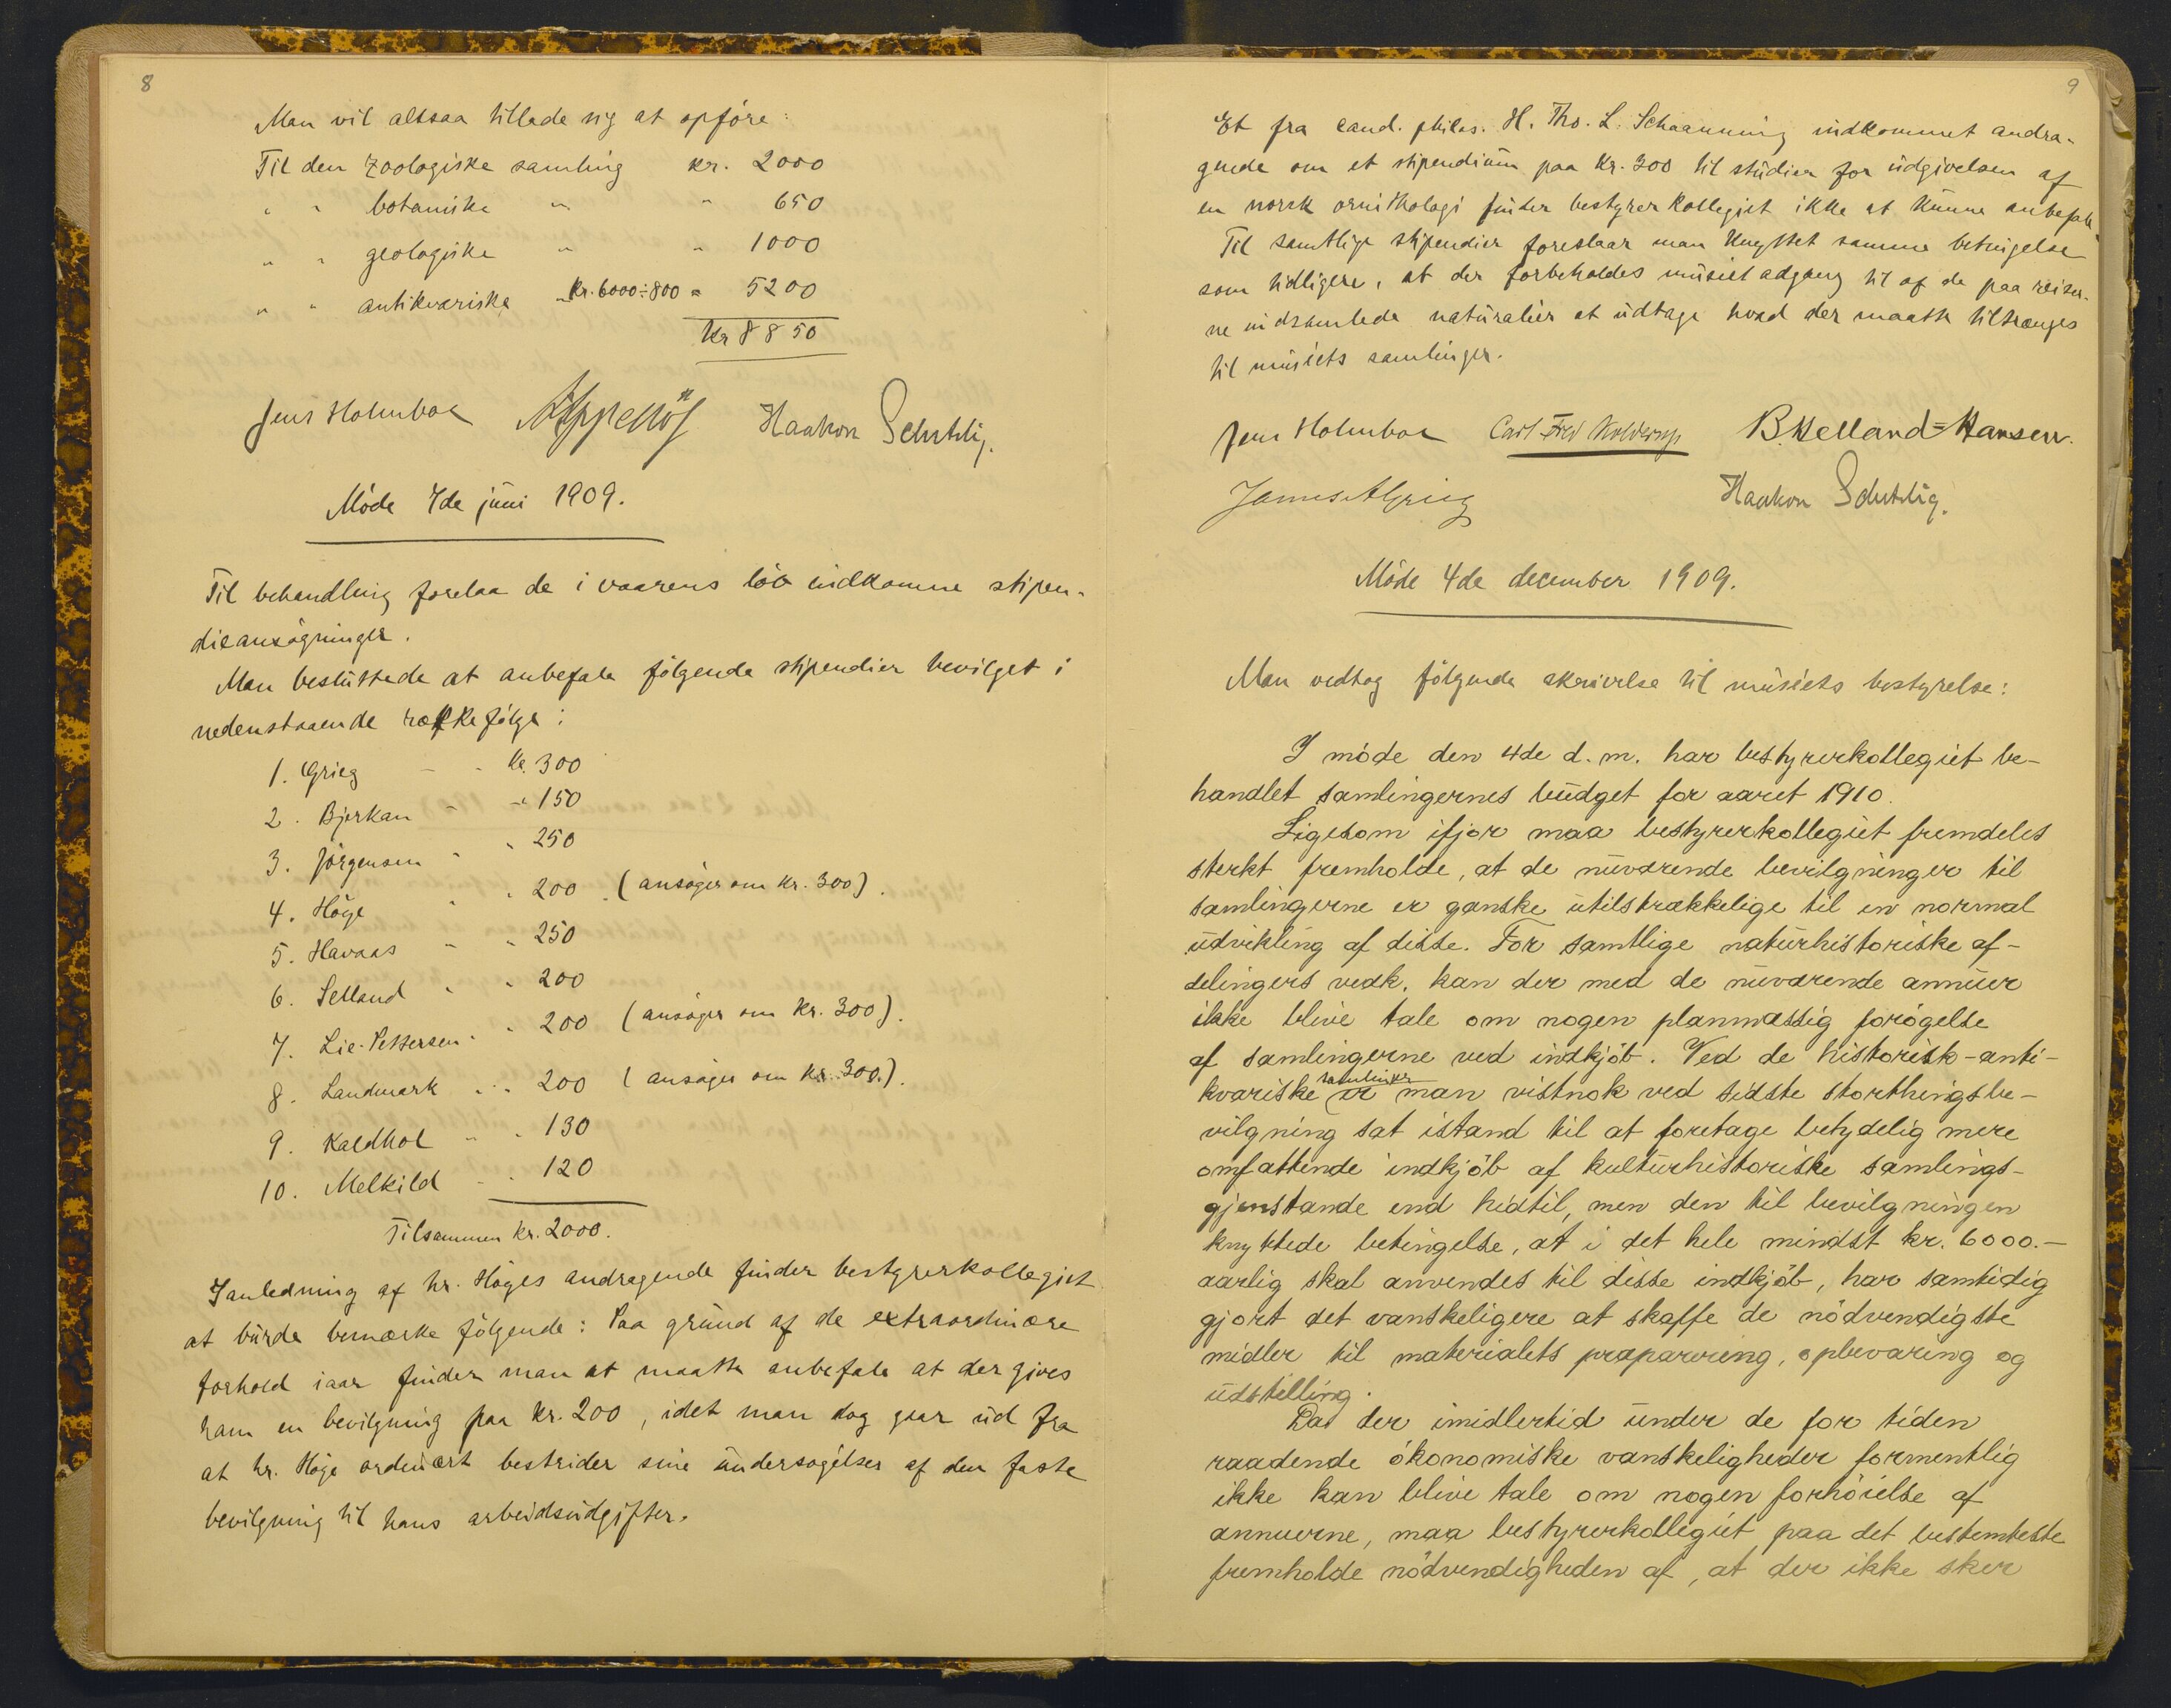 8
Man vil altsaa tillade sig at opføre:
Til den zoologiske samling kr. 2000
" " botaniske " " 650
" " geologiske " " 1000
" " antikvariske " kr. 6000 ÷ 800 = 5200
kr 8850
Jens Holmboe A Appellöf Haakon Schetelig.
Møde 7de juni 1909.
Til behandling forelaa de i vaarens løb indkomne stipen-
dieansøgninger.
Man besluttede at anbefale følgende stipendier bevilget i
nedenstaaende rækkefølge:
1. Grieg - - kr. 300
2. Bjerkan - " 150
3. Jørgensen " " 250
4. Høye " " 200 (ansøger om kr. 300).
5. Havaas " " 250
6. Selland " " 200
7. Lie-Pettersen " " 200 (ansøger om kr. 300).
8. Landmark " " 200 (ansøger om kr. 300.).
9. Kaldhol " " 130
10. Melkild " " 120
Tilsammen kr. 2000.
I anledning af hr. Høyes andragende finder bestyrerkollegiet
at burde bemærke følgende: Paa grund af de extraordinære
forhold iaar finder man at maatte anbefale at der gives
ham en bevilgning paa kr. 200, idet man dog gaar ud fra
at hr. Høye ordinært bestrider sine undersøgelser af den faste
bevilgning til hans arbeidsudgifter.
9
Et fra cand. philos. H. Tho. L. Schaanning indkommet andra-
gende om et stipendium paa kr. 300 til studier for udgivelsen af
en norsk ornithologi finder bestyrerkollegiet ikke at kunne anbefale.
Til samtlige stipendier foreslaar man knyttet samme betingelse
som tidligere, at der forbeholdes musæet adgang til af de paa reiser-
ne indsamlede naturalier at udtage hvad der maatte tiltrænges
til musæets samlinger.
Jens Holmboe Carl Fred Kolderup B. Helland-Hansen.
James A Grieg Haakon Schetelig.
Møde 4de december 1909.
Man vedtog følgende skrivelse til musæets bestyrelse:
I møde den 4de d. m. har bestyrerkollegiet be-
handlet samlingernes budget for aaret 1910.
Ligesom ifjor maa bestyrerkollegiet fremdeles
sterkt fremholde, at de nuværende bevilgninger til
samlingerne er ganske utilstrækkelige til en normal
udvikling af disse. For samtlige naturhistoriske af-
delingers vedk. kan der med de nuværende annuer
ikke blive tale om nogen planmæssig forøgelse
af samlingerne ved indkjøb. Ved de historisk-anti-
samlinger
kvariske er man vistnok ved sidste storthingsbe-
vilgning sat istand til at foretage betydelig mere
omfattende indkjøb af kulturhistoriske samlings-
gjenstande end hidtil, men den til bevilgningen
knyttede betingelse, at i det hele mindst kr. 6000.-
aarlig skal anvendes til disse indkjøb, har samtidig
gjort det vanskeligere at skaffe de nødvendigste
midler til materialets præparering, opbevaring og
udstilling.
Da der imidlertid under de for tiden
raadende økonomiske vanskeligheder formentlig
ikke kan blive tale om nogen forhøielse af
annuerne, maa bestyrerkollegiet paa det bestemteste
fremholde nødvendigheden af, at der ikke sker